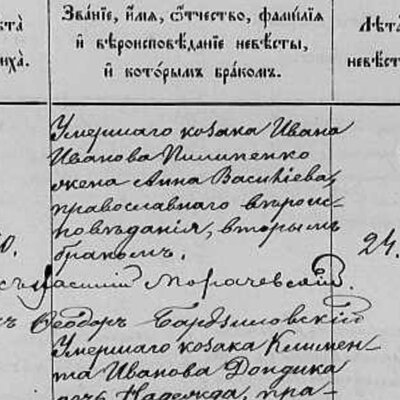 Зва́нїе, и҆́мѧ, ѻ҆́тчество, фами́лїѧ
и҆ вѣроисповѣ́данїе невѣ́сты,
и҆ кото́рымъ бра́комъ.
Лѣта̀
невѣст
Умершаго козака Ивана
Иванова Пилипенко
жена Анна Васильева,
православнаго вѣроис-
повѣданія, вторымъ
бракомъ.
24.
Ѳеодоръ
Умершаго козака Климен-
та Иванова Дондика
Надежда, пра-